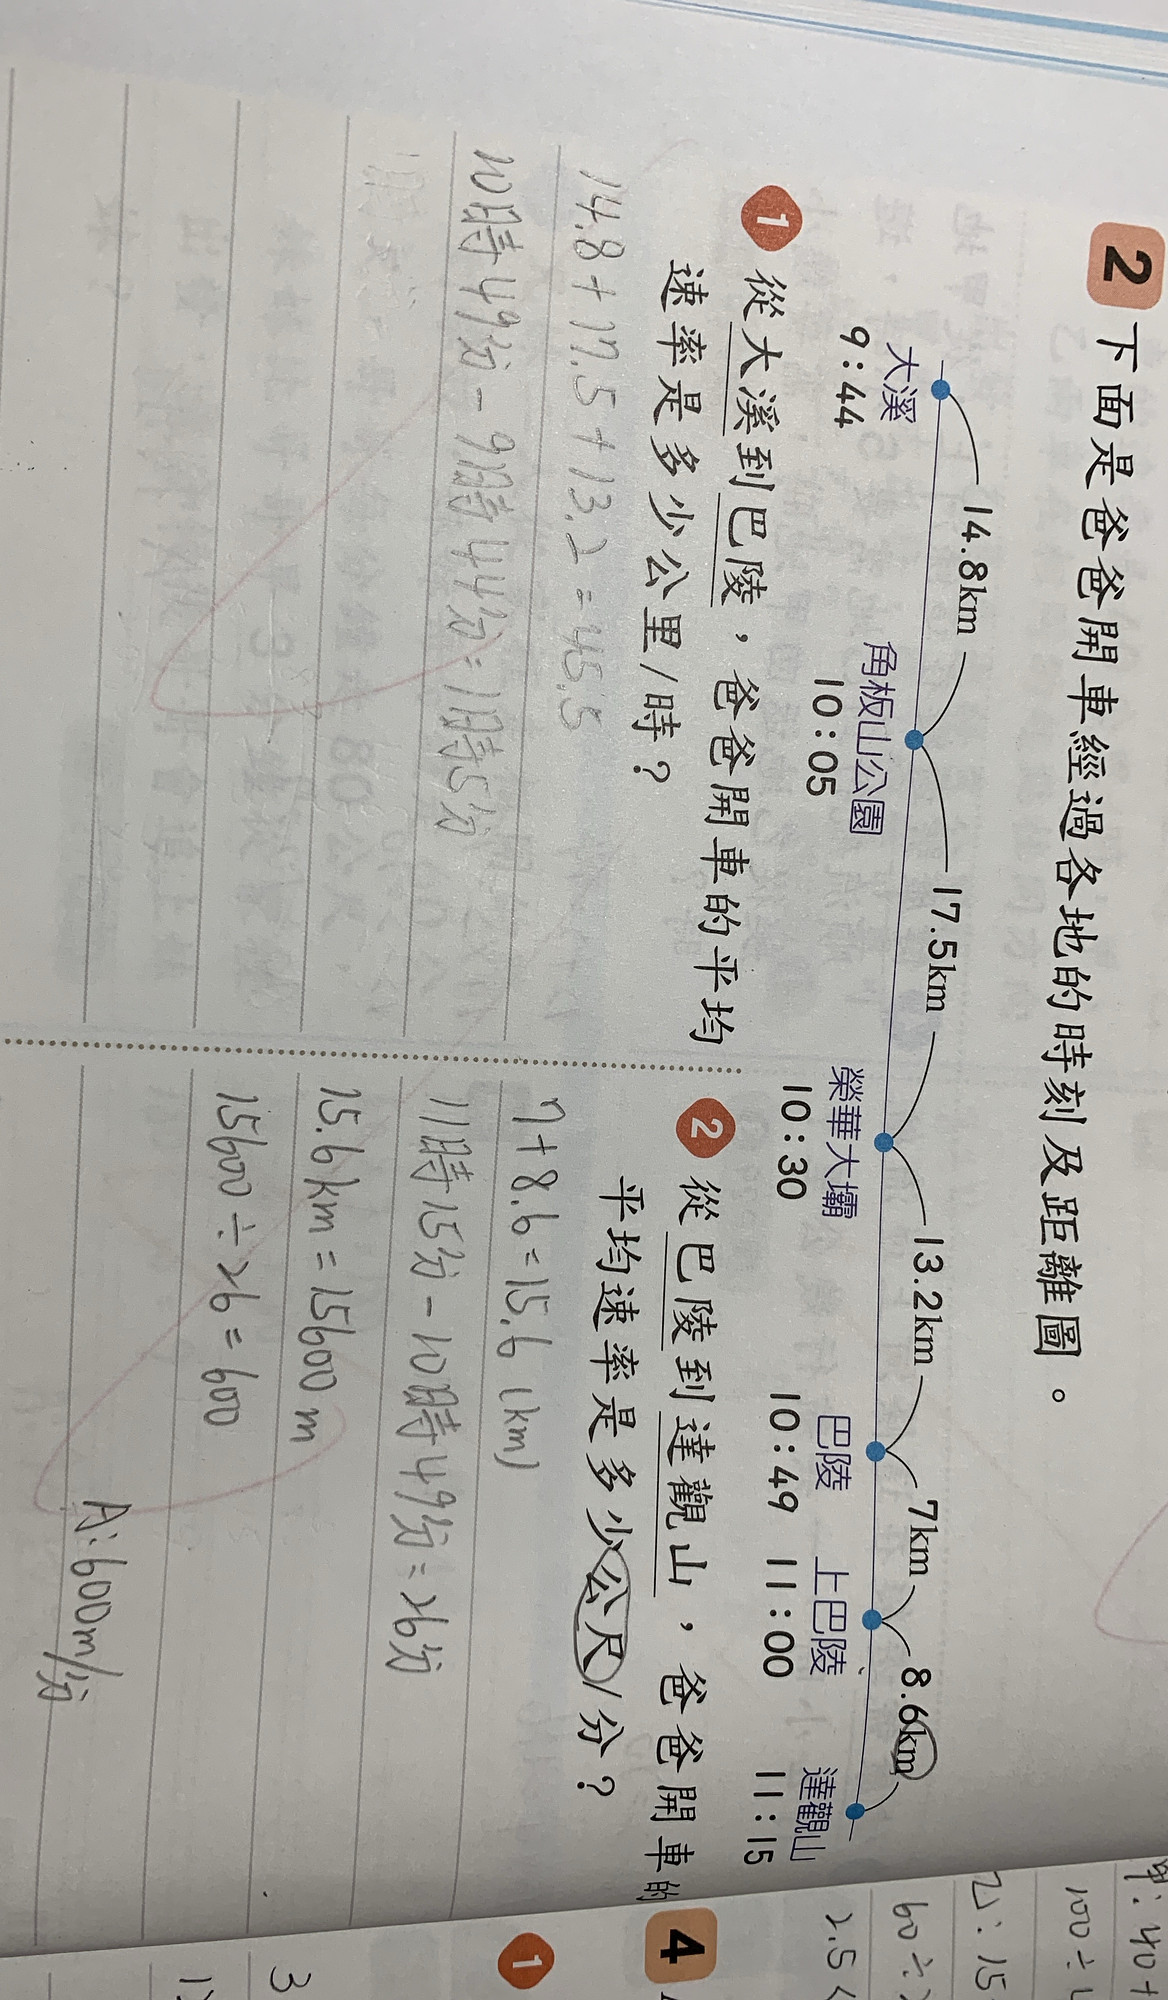 2 下面是爸爸開車經過各地的時刻及距離圖。
14.8km 17.5km 13.2km 7km 8.6km
大溪 角板山公園 榮華大壩 巴陵 上巴陵 達觀山
9:44 10:05 10:30 10:49 11:00 11:15
1 從大溪到巴陵，爸爸開車的平均
速率是多少公里/時？
14.8+17.5+13.2=45.5
10時49分-9時44分=1時5分
2 從巴陵到達觀山，爸爸開車的
平均速率是多少公尺/分？
7+8.6=15.6 (km)
11時15分-10時49分=26分
15.6km=15600m
15600÷26=600
A:600m/分
甲:40+
100÷
乙:15
60÷
2.5
4
1
3